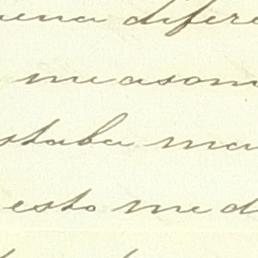 uena difere
me asom
staba ma
esto me d